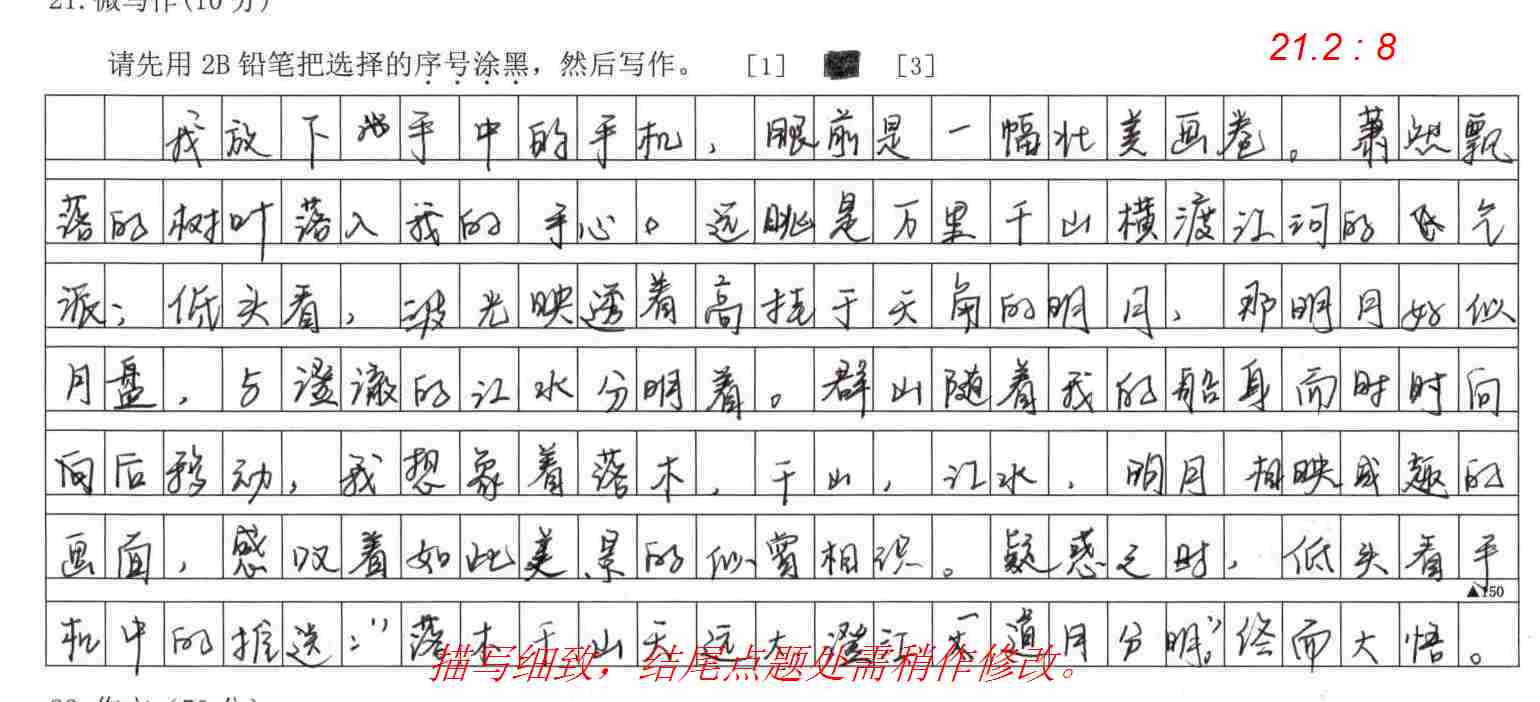 21.微写作(10分)
请先用 2B 铅笔把选择的序号涂黑，然后写作。 [1] [3]
21.2 : 8
我放下手中的手机，眼前是一幅壮美画卷。萧然飘
落的树叶落入我的手心。远眺是万里千山横渡江河的气
派；低头看，波光映透着高挂于天角的明月，那明月好似
月盘，与澄澈的江水分明着。群山随着我的船身而时时向
向后移动，我想象着落木，千山，江水，明月相映成趣的
画面，感叹着如此美景的似曾相识。疑惑之时，低头看手
▲150
机中的推送："落木千山天远大澄江一道月分明"终而大悟。
描写细致，结尾点题处需稍作修改。